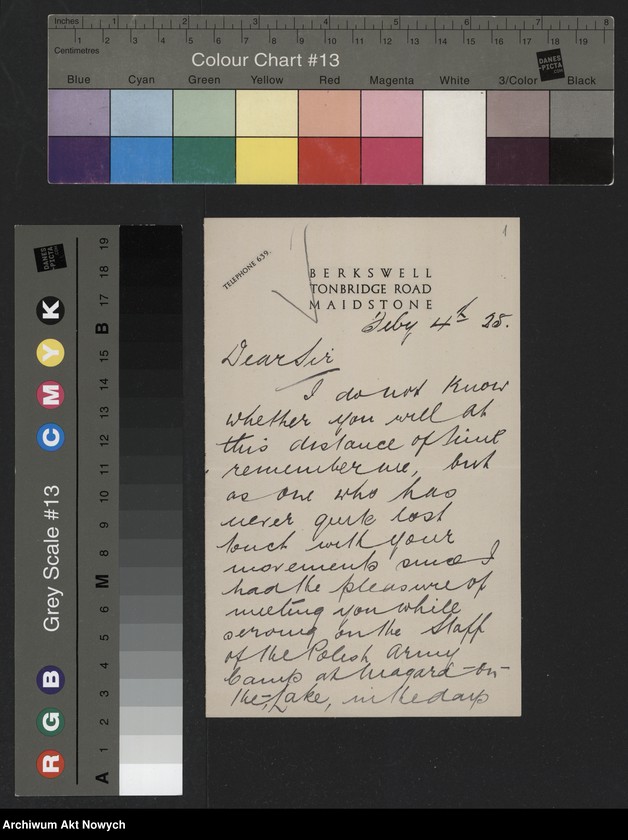 Inches 1 2 3 4 5 6 7 8
Centimetres 1 2 3 4 5 6 7 8 9 10 11 12 13 14 15 16 17 18 19
Colour Chart #13
DANES
-PICTA
.COM
Blue Cyan Green Yellow Red Magenta White 3/Color Black
Grey Scale #13
DANES
-PICTA
.COM
R G B C M Y K
A 1 2 3 4 5 6 M 8 9 10 11 12 13 14 15 B 17 18 19
1
TELEPHONE 639.
BERKSWELL
TONBRIDGE ROAD
MAIDSTONE
Feby 4th 25.
Dear Sir
I do not know
whether you will at
this distance of time
remember me, but
as one who has
never quite lost
touch with your
movements since I
had the pleasure of
meeting you while
serving on the Staff
of the Polish Army
Camp at Niagara-on-
the-Lake, in the days
Archiwum Akt Nowych